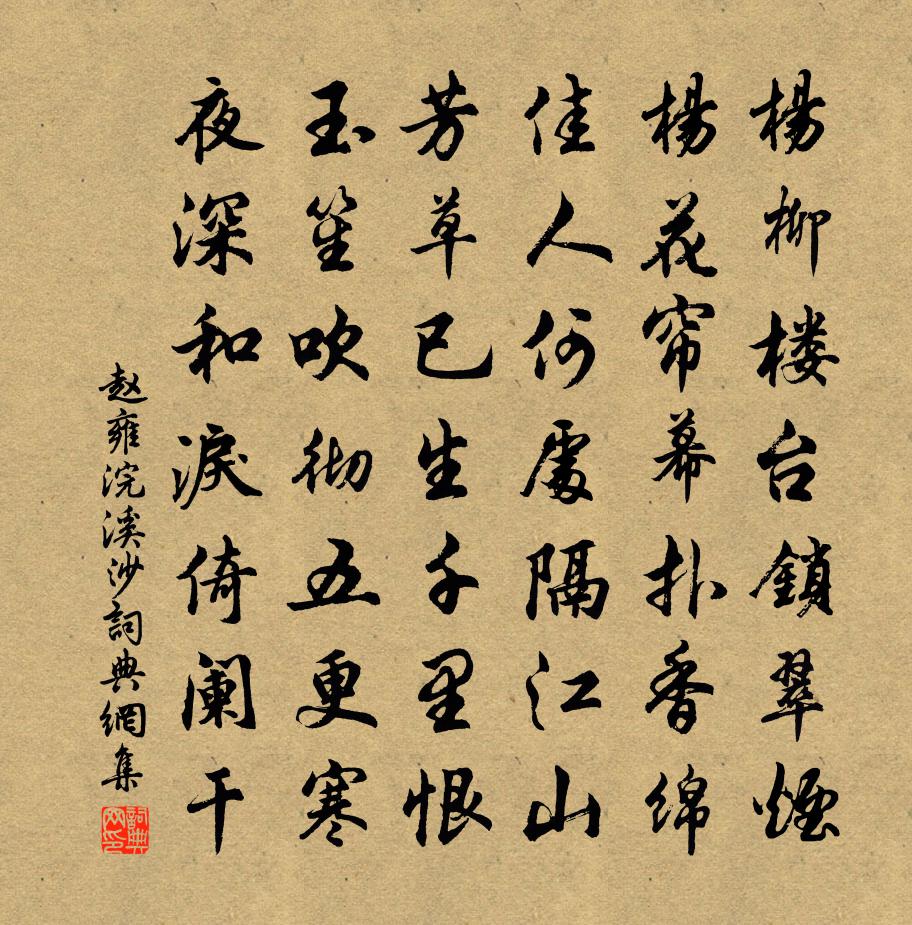 楊柳楼台鎖翠煙
楊花帘幕扑香绵
佳人何處隔江山
芳草已生千里恨
玉笙吹彻五更寒
夜深和淚倚阑干
赵雍浣溪沙詞典網集
詞典网印